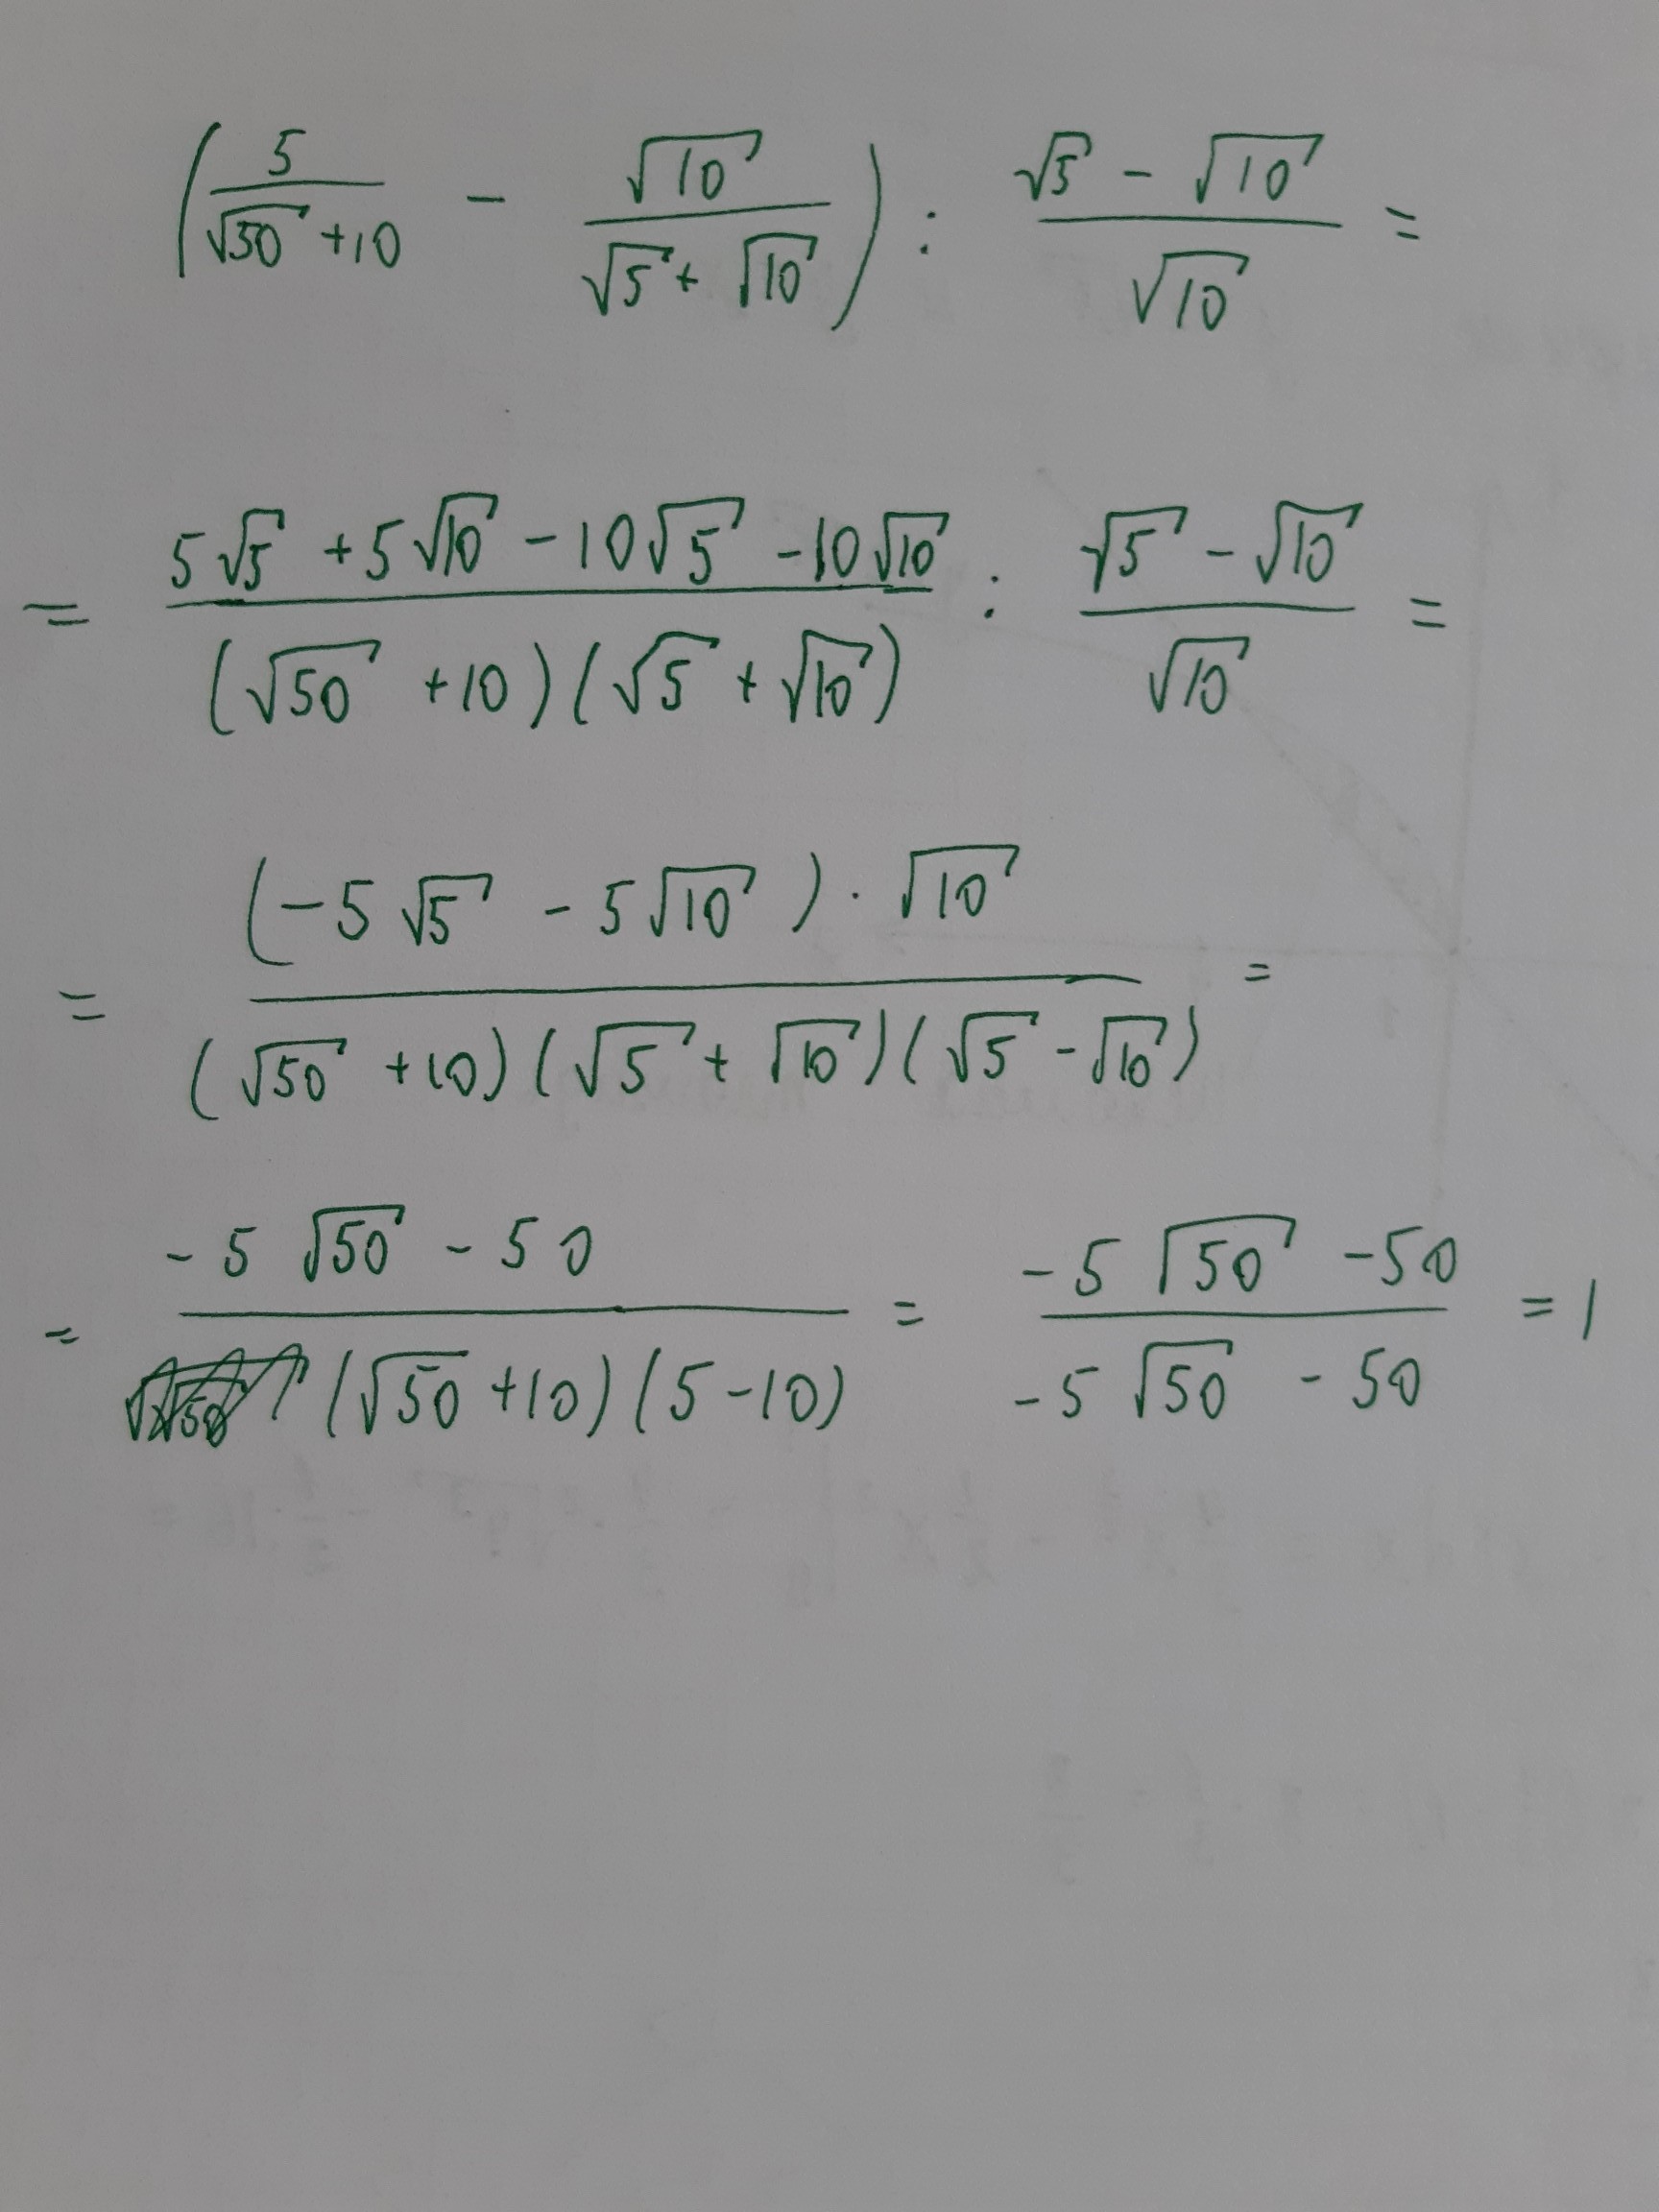 (5/(√50 + 10) - √10/(√5 + √10)) : (√5 - √10)/√10 =
= (5√5 + 5√10 - 10√5 - 10√10)/((√50 + 10)(√5 + √10)) : (√5 - √10)/√10 =
= ((-5√5 - 5√10) · √10)/((√50 + 10)(√5 + √10)(√5 - √10)) =
= (-5√50 - 50)/((√50 + 10)(5 - 10)) = (-5√50 - 50)/(-5√50 - 50) = 1